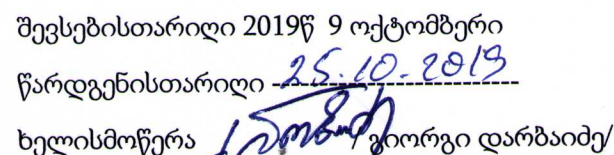 შევსებისთარიღი 2019წ 9 ოქტომბერი
წარდგენისთარიღი 25.10.2019
ხელისმოწერა /გიორგი დარბაიძე/